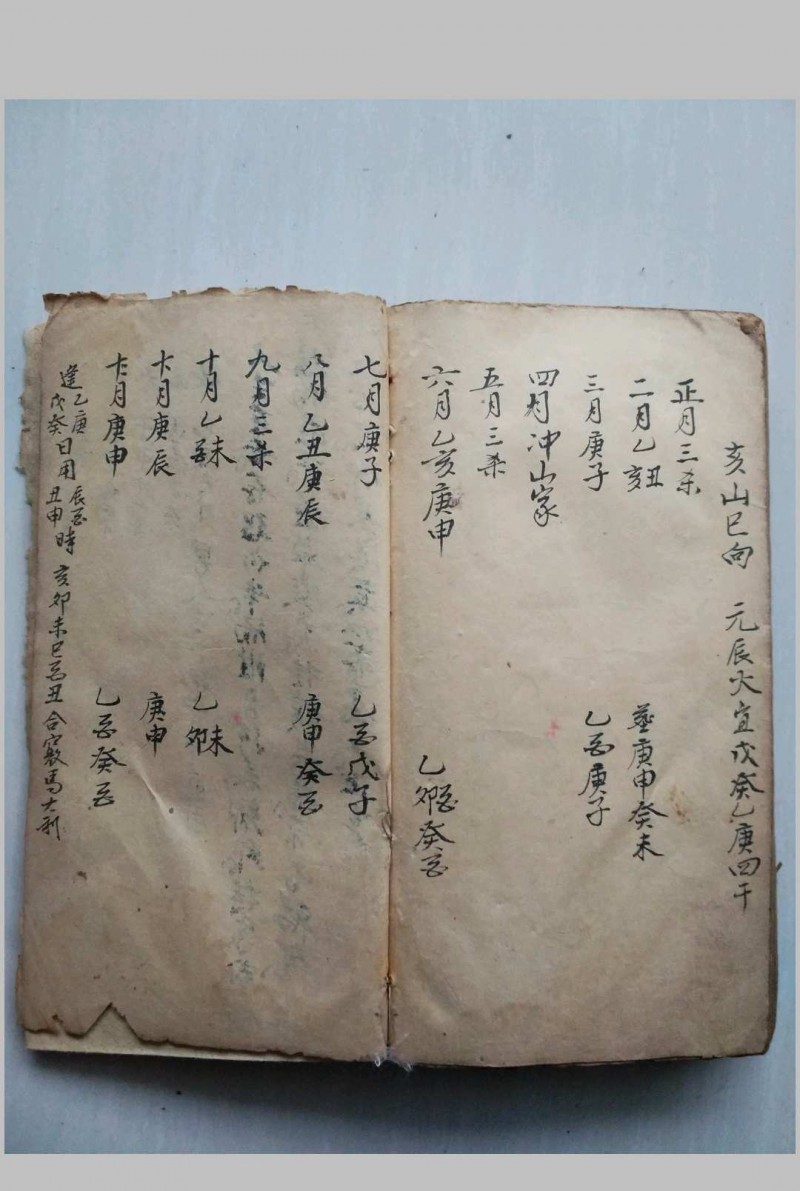 亥山巳向　元辰火宜戊癸乙庚四干
正月三杀
二月乙丑亥　葬庚申癸未
三月庚子　乙酉庚子
四月冲山家
五月三杀
六月乙亥庚申　乙卯酉癸酉
七月庚子　乙酉戊子
八月乙丑庚辰　庚申癸酉
九月三杀
十月乙未　乙卯未
十一月庚辰　庚申
十二月庚申　乙酉癸酉
逢乙庚戊癸日用辰酉丑申時　亥卯未巳酉丑合窍馬大利